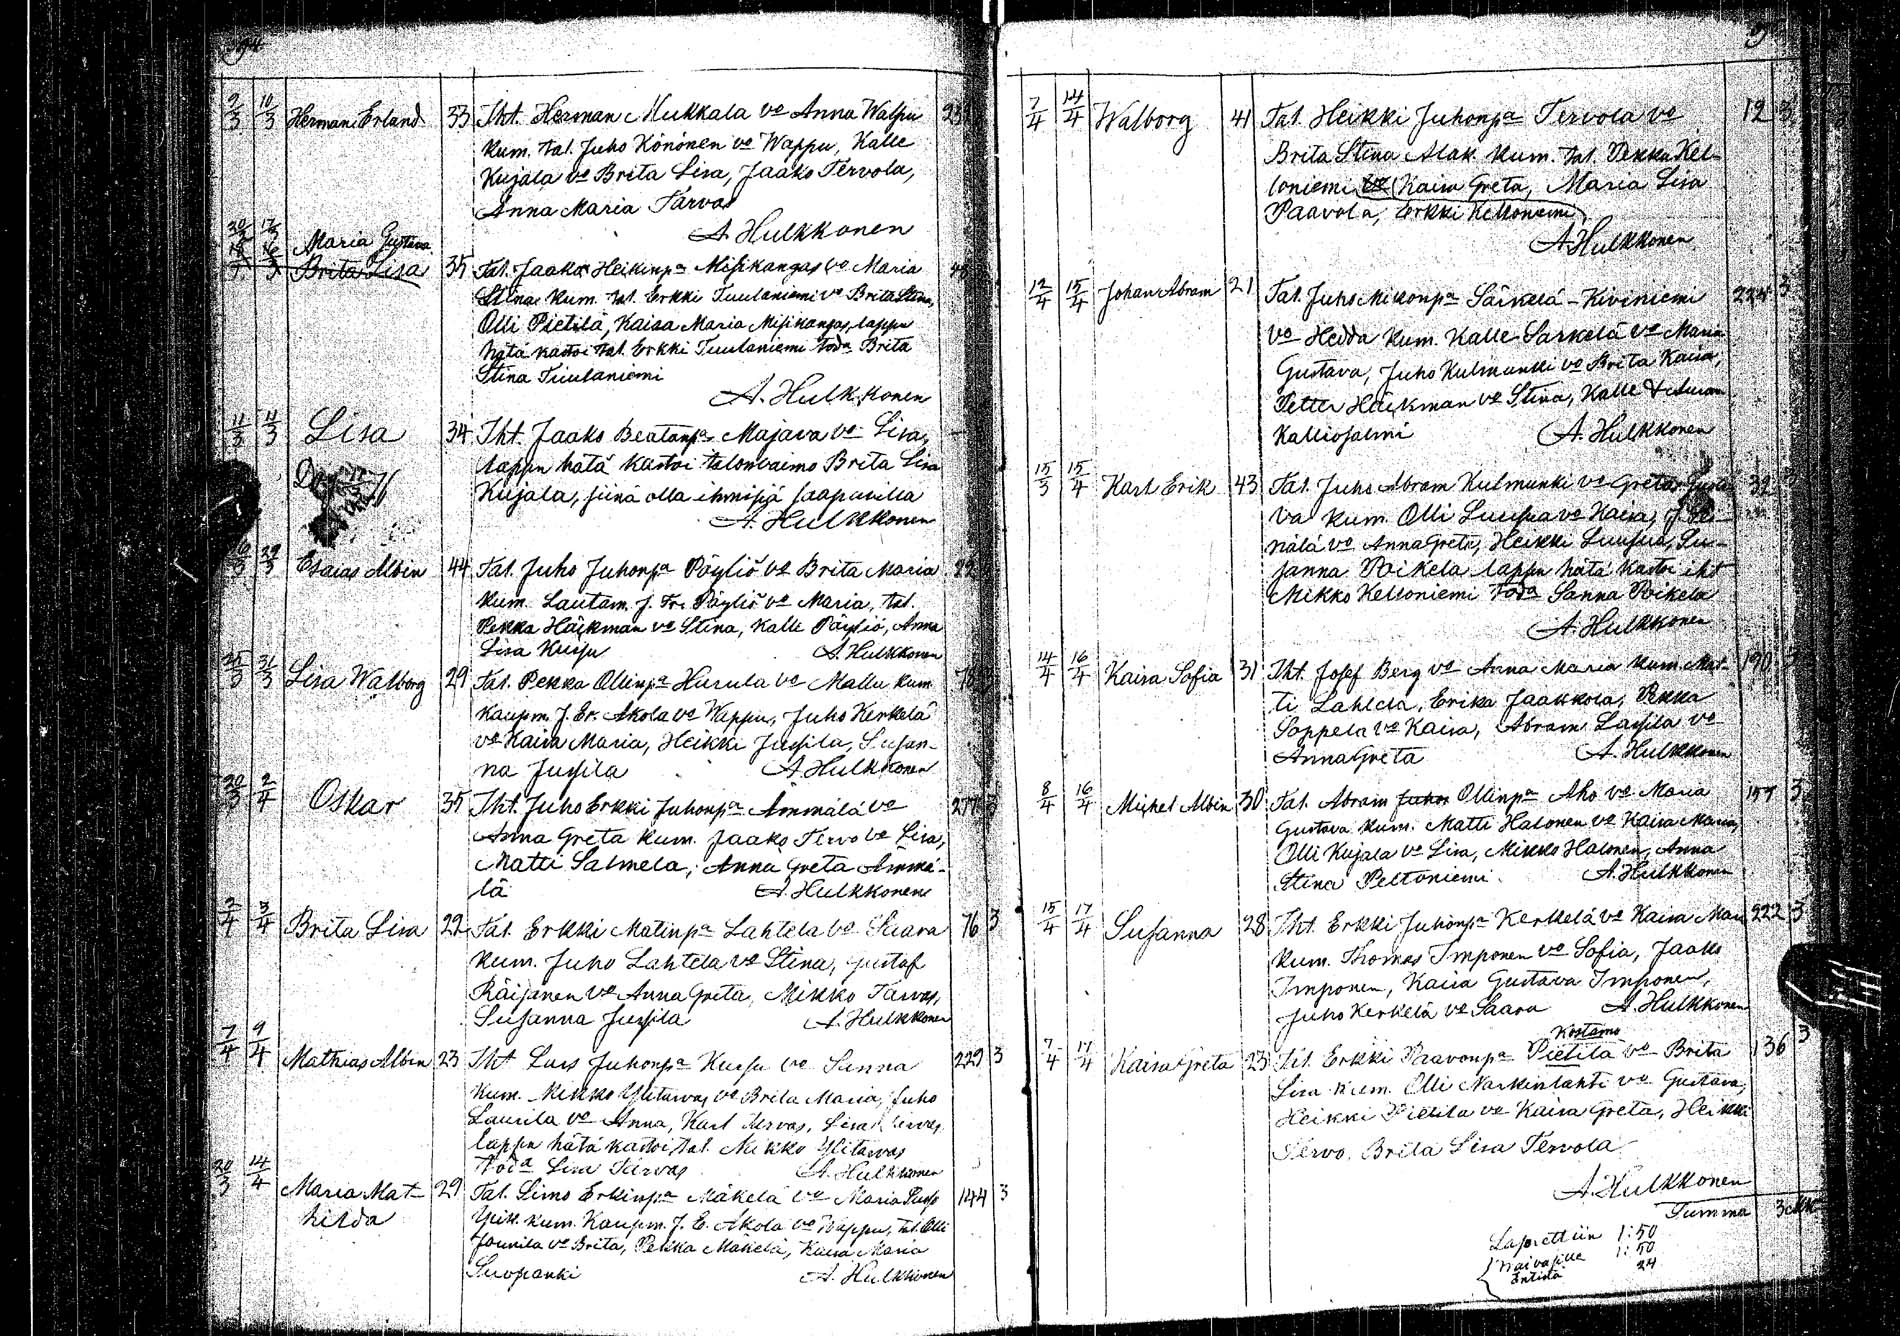 94
9/3 10/3 Herman Erland 33 Iht. Herman Mukkala vo Anna Walpu 231
kum. tal. Juho Könönen vo Wappu, Kalle
Kujala vo Brita Lisa, Jaako Tervola,
Anna Maria Tarvas
A. Hulkkonen
Maria Gustava
Brita Lisa 35 Tal. Jaako Heikinpa Misikangas vo Maria 48
Stina kum. tal. Erkki Tuulaniemi vo Brita Stina,
Olli Pietilä, Kaisa Maria Misikangas, lappu
hätä kastoi tal. Erkki Tuulaniemi toda Brita
Stina Tuulaniemi
A. Hulkkonen
11/3 11/3 Lisa 34 Iht. Jaako Beatanpa Majava vo Lisa, —
lappu hätä kastoi talonvaimo Brita Lisa
Kujala, siinä olla ihmisiä saapuvilla
A. Hulkkonen
Esaias Albin 44 Tal. Juho Juhonpa Pöyliö vo Brita Maria 22
kum. Lautam. J. Fr. Pöyliö vo Maria, tal.
Pekka Häikman vo Stina, Kalle Pöyliö, Anna
Lisa Kursu A. Hulkkonen
25/3 31/3 Lisa Walborg 29 Tal. Pekka Ollinpa Hurula vo Mallu kum. 78 3
Kaupm. J. Er. Akola vo Wappu, Juho Kerkelä
vo Kaisa Maria, Heikki Jussila, Susan-
na Jussila A. Hulkkonen
20/3 2/4 Oskar 35 Iht. Juho Erkki Juhonpa Ämmälä vo 277 3
Anna Greta kum. Jaako Tervo vo Lisa,
Matti Salmela, Anna Greta Ämmä-
lä A. Hulkkonen
2/4 3/4 Brita Lisa 22 Tal. Erkki Matinpa Lahtela vo Saara 76 3
kum. Juho Lahtela vo Stina, Gustaf
Räisänen vo Anna Greta, Mikko Tarvas,
Susanna Jussila A. Hulkkonen
7/4 9/4 Mathias Albin 23 Iht Lars Juhonpa Kursu vo Sanna 229 3
kum. Mikko Ylitarvas vo Brita Maria, Juho
Laurila vo Anna, Karl Tarvas, Lisa Tarvas
lappu hätä kastoi tal. Mikko Ylitarvas
toda Lisa Tarvas A. Hulkkonen
20/3 14/4 Maria Mat- 29 Tal. Simo Erkinpa Mäkelä vo Maria 144 3
hilda kum. Kaupm. J. E. Akola vo Wappu, tal. Olli
Jounila vo Brita, Pekka Mäkelä, Kaisa Maria
Suopanki A. Hulkkonen
7/4 14/4 Walborg 41 Tal. Heikki Juhonpa Tervola vo 12 3
Brita Stina Alak. kum. tal. Pekka Kel-
loniemi vo (Kaisa Greta, Maria Lisa
Paavola, Erkki Kelloniemi)
A. Hulkkonen
12/4 15/4 Johan Abram 21 Tal. Juho Mikonpa Särkelä-Kiviniemi 224 3
vo Hedda kum. Kalle Särkelä vo Maria
Gustava, Juho Kulmunki vo Brita Kaisa,
Petter Häikman vo Stina, Kalle
Kalliosalmi A. Hulkkonen
15/3 15/4 Karl Erik 43 Tal. Juho Abram Kulmunki vo Greta Gusta- 32 3
va kum. Olli Luusua vo Kaisa, J.
nälä vo Anna Greta, Heikki Luusua, Su-
sanna Poikela lappu hätä kastoi iht
Mikko Kelloniemi toda Sanna Poikela
A. Hulkkonen
14/4 16/4 Kaisa Sofia 31 Iht. Josef Berg vo Anna Maria kum. Mat- 190 3
ti Lahtela, Erika Jaakkola, Pekka
Soppela vo Kaisa, Abram Lassila vo
Anna Greta A. Hulkkonen
8/4 16/4 Mickel Albin 30 Tal. Abram Juhon Ollinpa Aho vo Maria 157 3
Gustava kum. Matti Halonen vo Kaisa Maria,
Olli Kujala vo Lisa, Mikko Halonen, Anna
Stina Peltoniemi A. Hulkkonen
15/4 17/4 Susanna 28 Iht. Erkki Juhonpa Kerkelä vo Kaisa Mari 222 3
kum. Thomas Imponen vo Sofia, Jaako
Imponen, Kaisa Gustava Imponen,
Juho Kerkelä vo Saara A. Hulkkonen
Kostamo
7/4 17/4 Kaisa Greta 23 Tal. Erkki Paavonpa Pietilä vo Brita 136 3
Lisa kum. Olli Narkinlahti vo Gustava,
Heikki Pietilä vo Kaisa Greta, Heikki
Tervo, Brita Lisa Tervola
A. Hulkkonen
Summa
1:50
1:50
Entistä 24